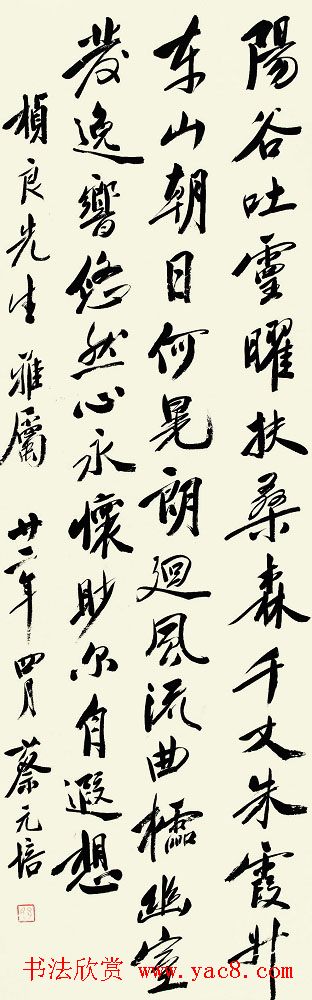 陽谷吐靈曜扶桑森千丈朱霞升
东山朝日何晃朗迴風流曲櫺幽室
發逸響悠然心永懷眇尔自遐想
楨良先生雅屬 廿二年四月 蔡元培
书法欣赏 www.yac8.com